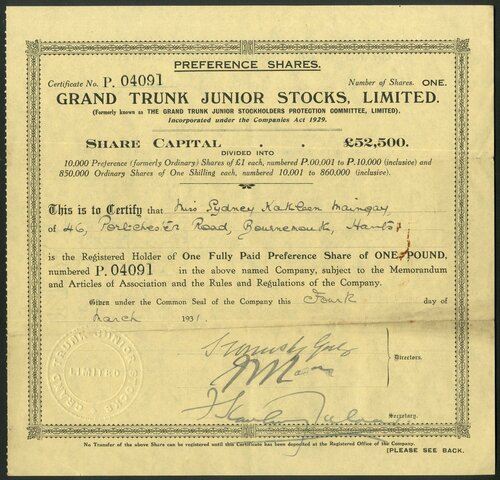 PREFERENCE SHARES.
Certificate No. P. 04091 Number of Shares. ONE.
GRAND TRUNK JUNIOR STOCKS, LIMITED.
(Formerly known as THE GRAND TRUNK JUNIOR STOCKHOLDERS PROTECTION COMMITTEE, LIMITED).
Incorporated under the Companies Act 1929.
SHARE CAPITAL . . £52,500.
DIVIDED INTO
10,000 Preference (formerly Ordinary) Shares of £1 each, numbered P.00,001 to P.10,000 (inclusive) and
850,000 Ordinary Shares of One Shilling each, numbered 10,001 to 860,000 (inclusive).
This is to Certify that Miss Sydney Kathleen Maingay
of 46, Portchester Road, Bournemouth, Hants.
is the Registered Holder of One Fully Paid Preference Share of ONE POUND,
numbered P. 04091 in the above named Company, subject to the Memorandum
and Articles of Association and the Rules and Regulations of the Company.
Given under the Common Seal of the Company this Fourth day of
March 1931.
Directors.
Secretary.
GRAND TRUNK JUNIOR STOCKS
LIMITED
No Transfer of the above Share can be registered until this Certificate has been deposited at the Registered Office of the Company.
[PLEASE SEE BACK.